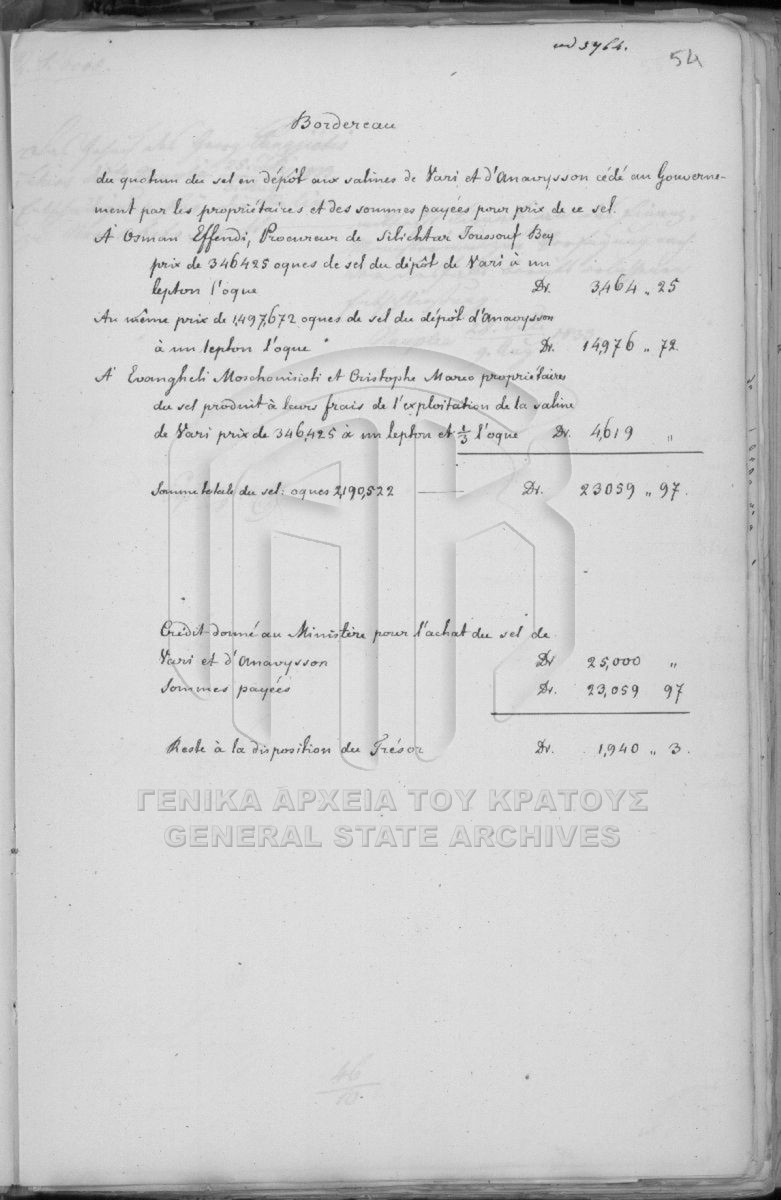 ad 3764.
54
Bordereau
du quotum du sel en dépôt aux salines de Vari et d'Anavysson cédé au Gouverne-
ment par les propriétaires et des sommes payées pour prix de ce sel.
A Osman Effendi, Procureur de Silichtar Joussouf Bey
prix de 346425 oques de sel du dépôt de Vari à un
lepton l'oque Dr. 3,464 „ 25
Au même prix de 1,497,672 oques de sel du dépôt d'Anavysson
à un lepton l'oque " Dr. 14,976 „ 72
A Evangheli Moschonisioti et Cristophe Marco propriétaires
du sel produit à leurs frais de l'exploitation de la saline
de Vari prix de 346,425 à un lepton et 1/3 l'oque Dr. 4,619 „
Somme totale du sel: oques 2,190,522 Dr. 23059 „ 97.
Crédit donné au Ministère pour l'achat du sel de
Vari et d'Anavysson Dr 25,000 „
Sommes payées Dr. 23,059 97
Reste à la disposition du Trésor Dr. 1,940 „ 3.
ΓΕΝΙΚΑ ΑΡΧΕΙΑ ΤΟΥ ΚΡΑΤΟΥΣ
GENERAL STATE ARCHIVES
46
10